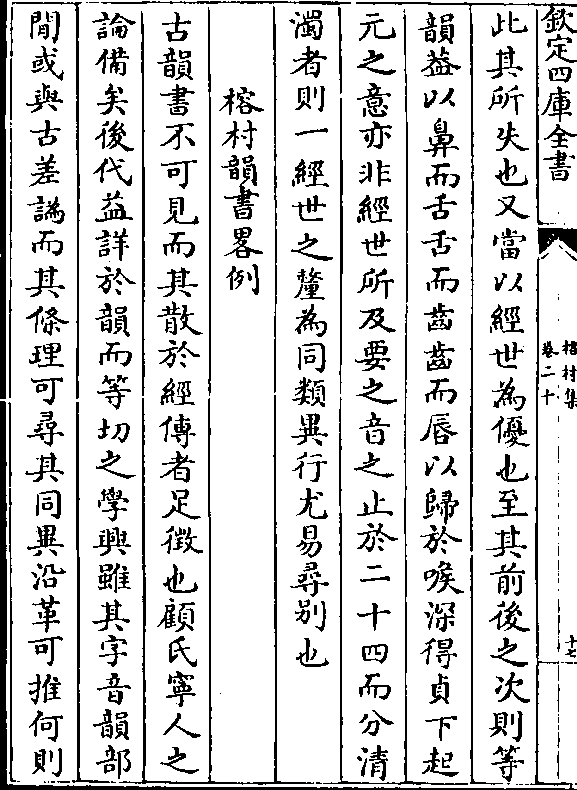 欽定四庫全書
榕村集
卷二十
十七
此其所失也又當以經世為優也至其前後之次則等
韻葢以鼻而舌舌而齒齒而唇以歸於喉深得貞下起
元之意亦非經世所及要之音之止於二十四而分清
濁者則一經世之釐為同類異行尤易尋别也
榕村韻書畧例
古韻書不可見而其散於經傳者足徴也顧氏寧人之
論備矣後代益詳於韻而等切之學興雖其字音韻部
閒或與古差譌而其條理可尋其同異沿革可推何則